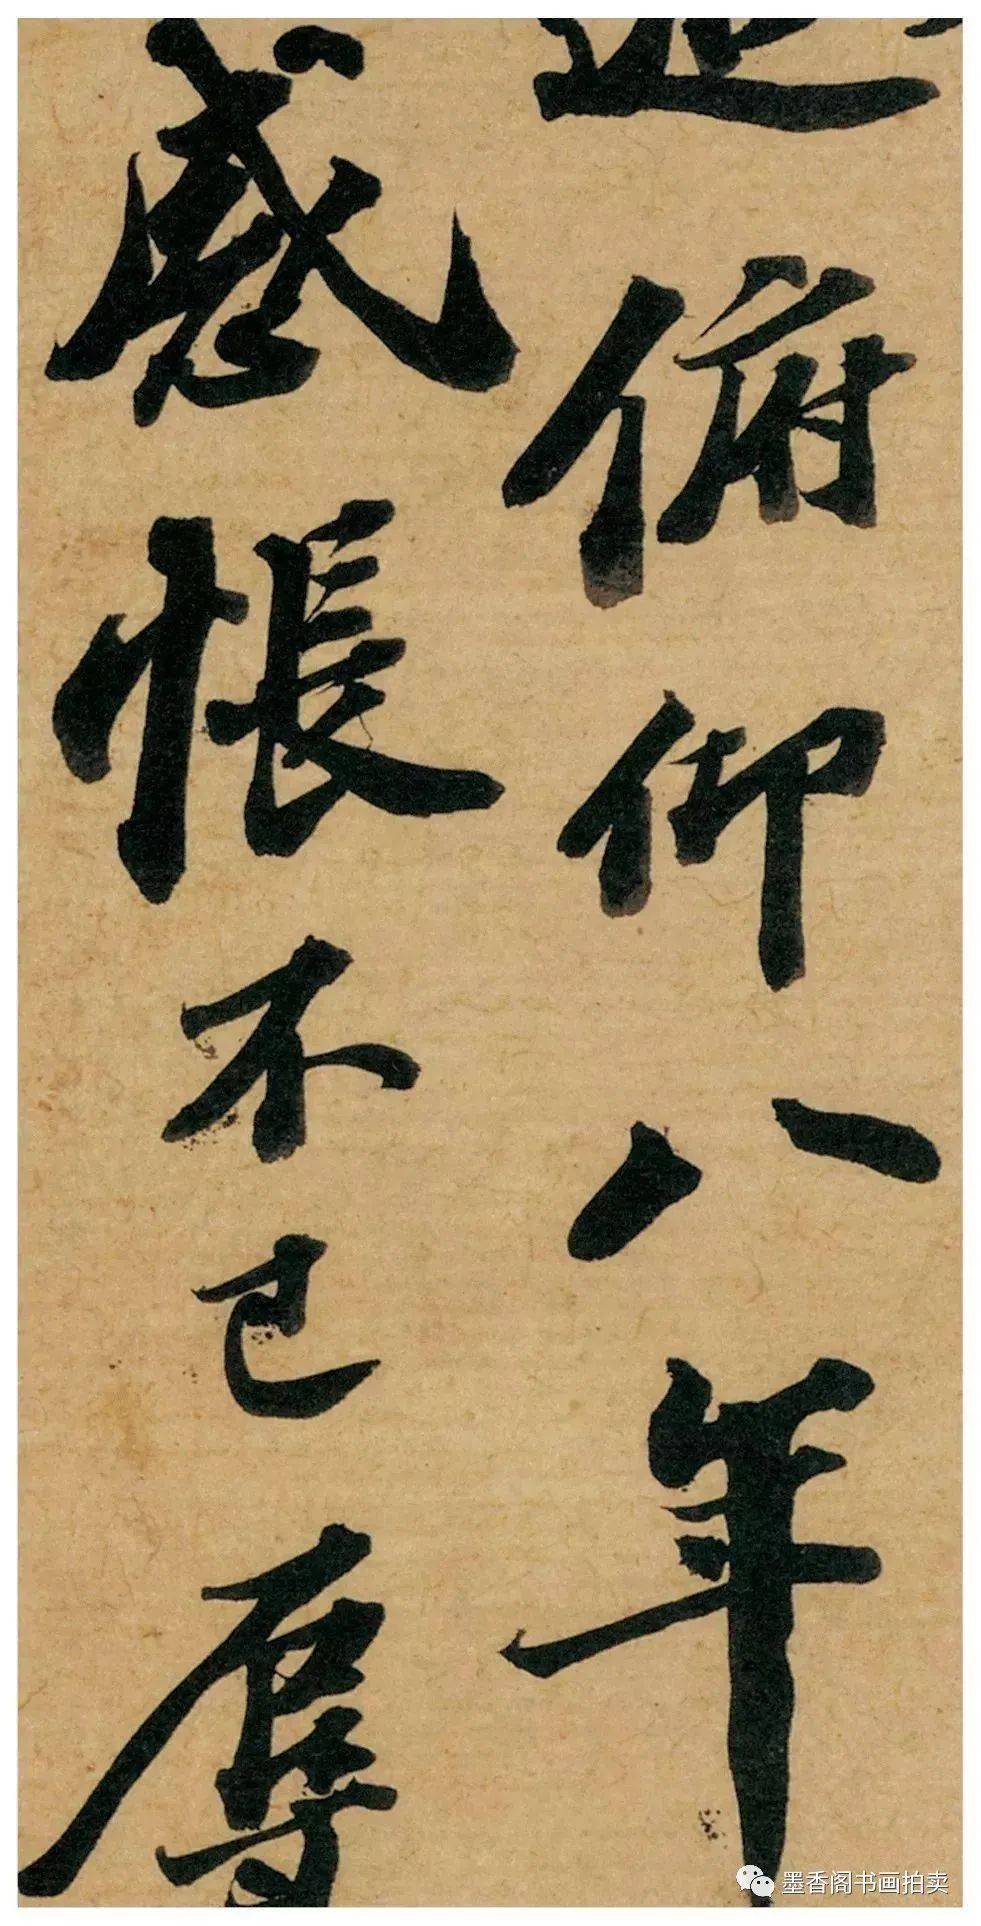 俯仰八年
感悵不已辱
墨香阁书画拍卖